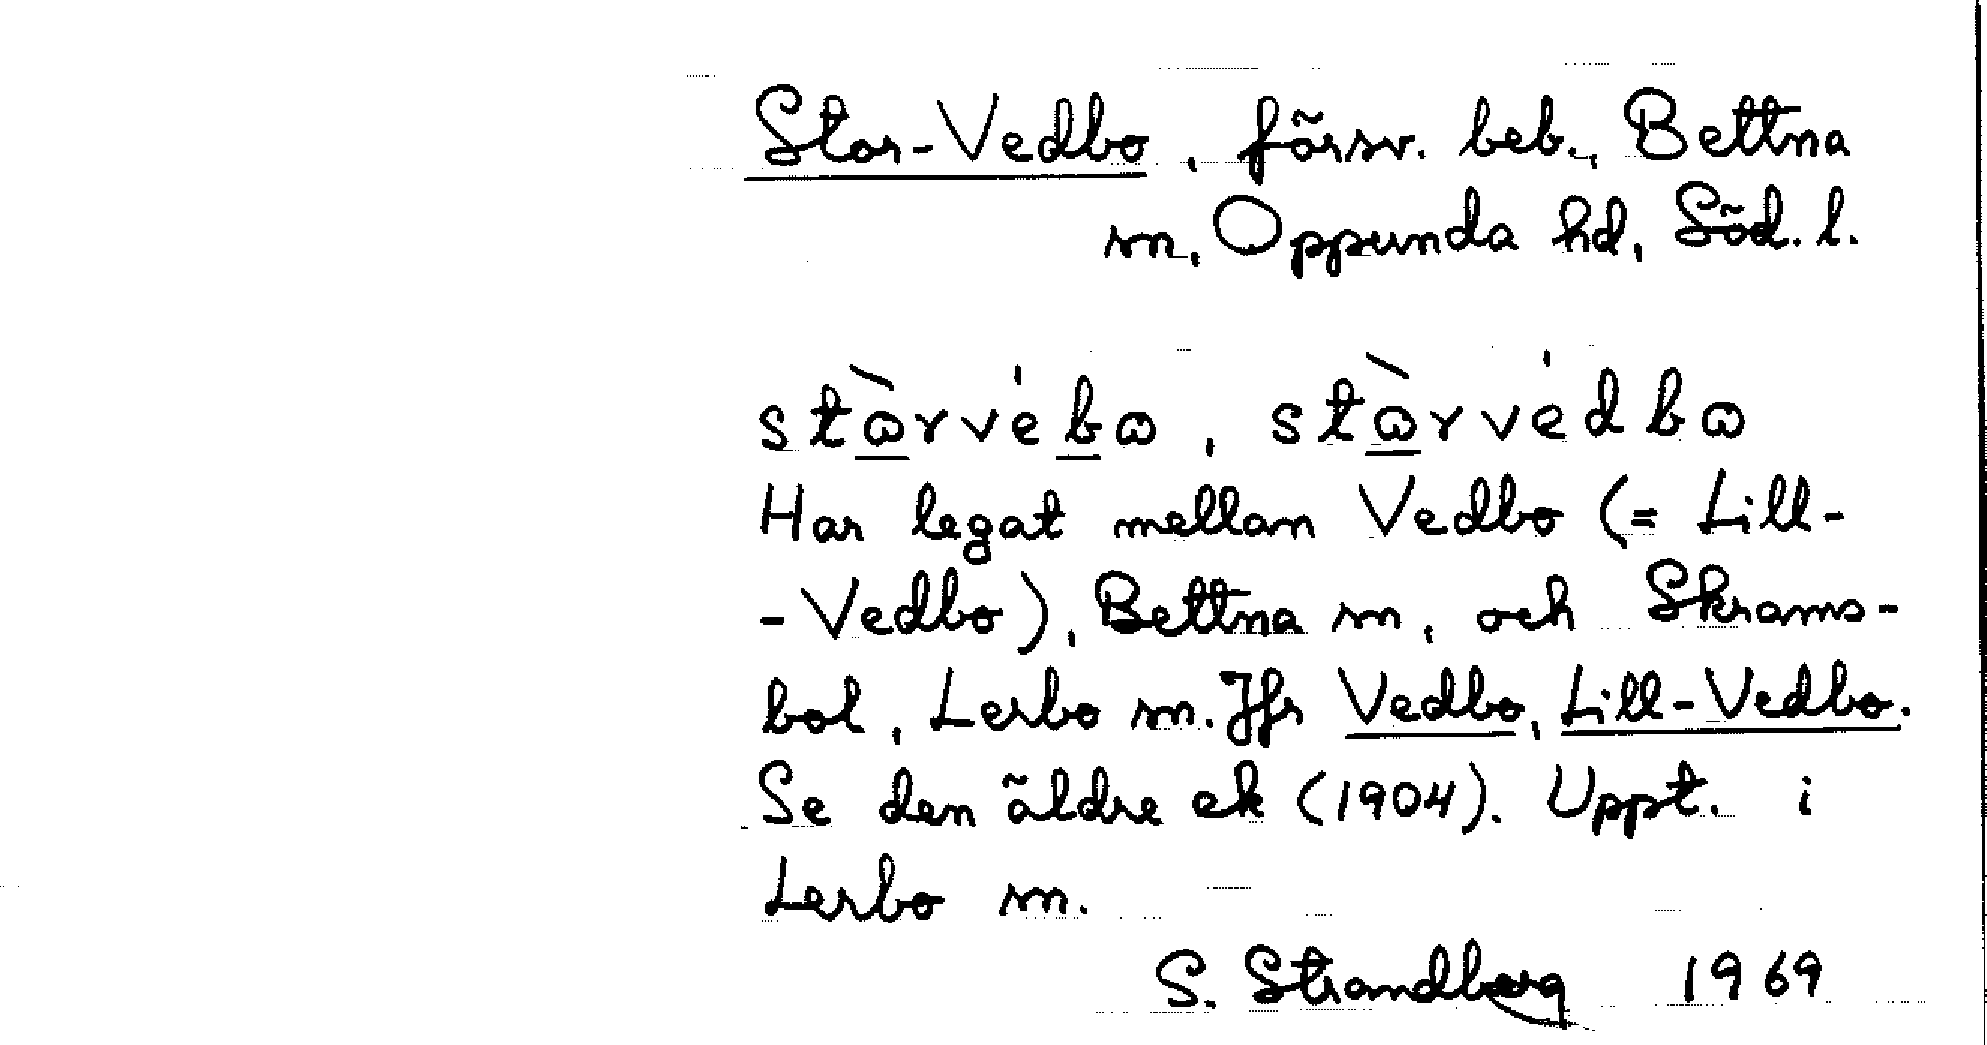 Stor-Vedbo, försv. beb., Bettna
sn, Oppunda hd, Söd. l.
stὼrvébω, stὼrvédbω
Har legat mellan Vedbo (= Lill-
-Vedbo), Bettna sn, och Skrams-
bol, Lerbo sn. Jfr Vedbo, Lill-Vedbo.
Se den äldre ek (1904). Uppt. i
Lerbo sn.
S. Strandberg 1969